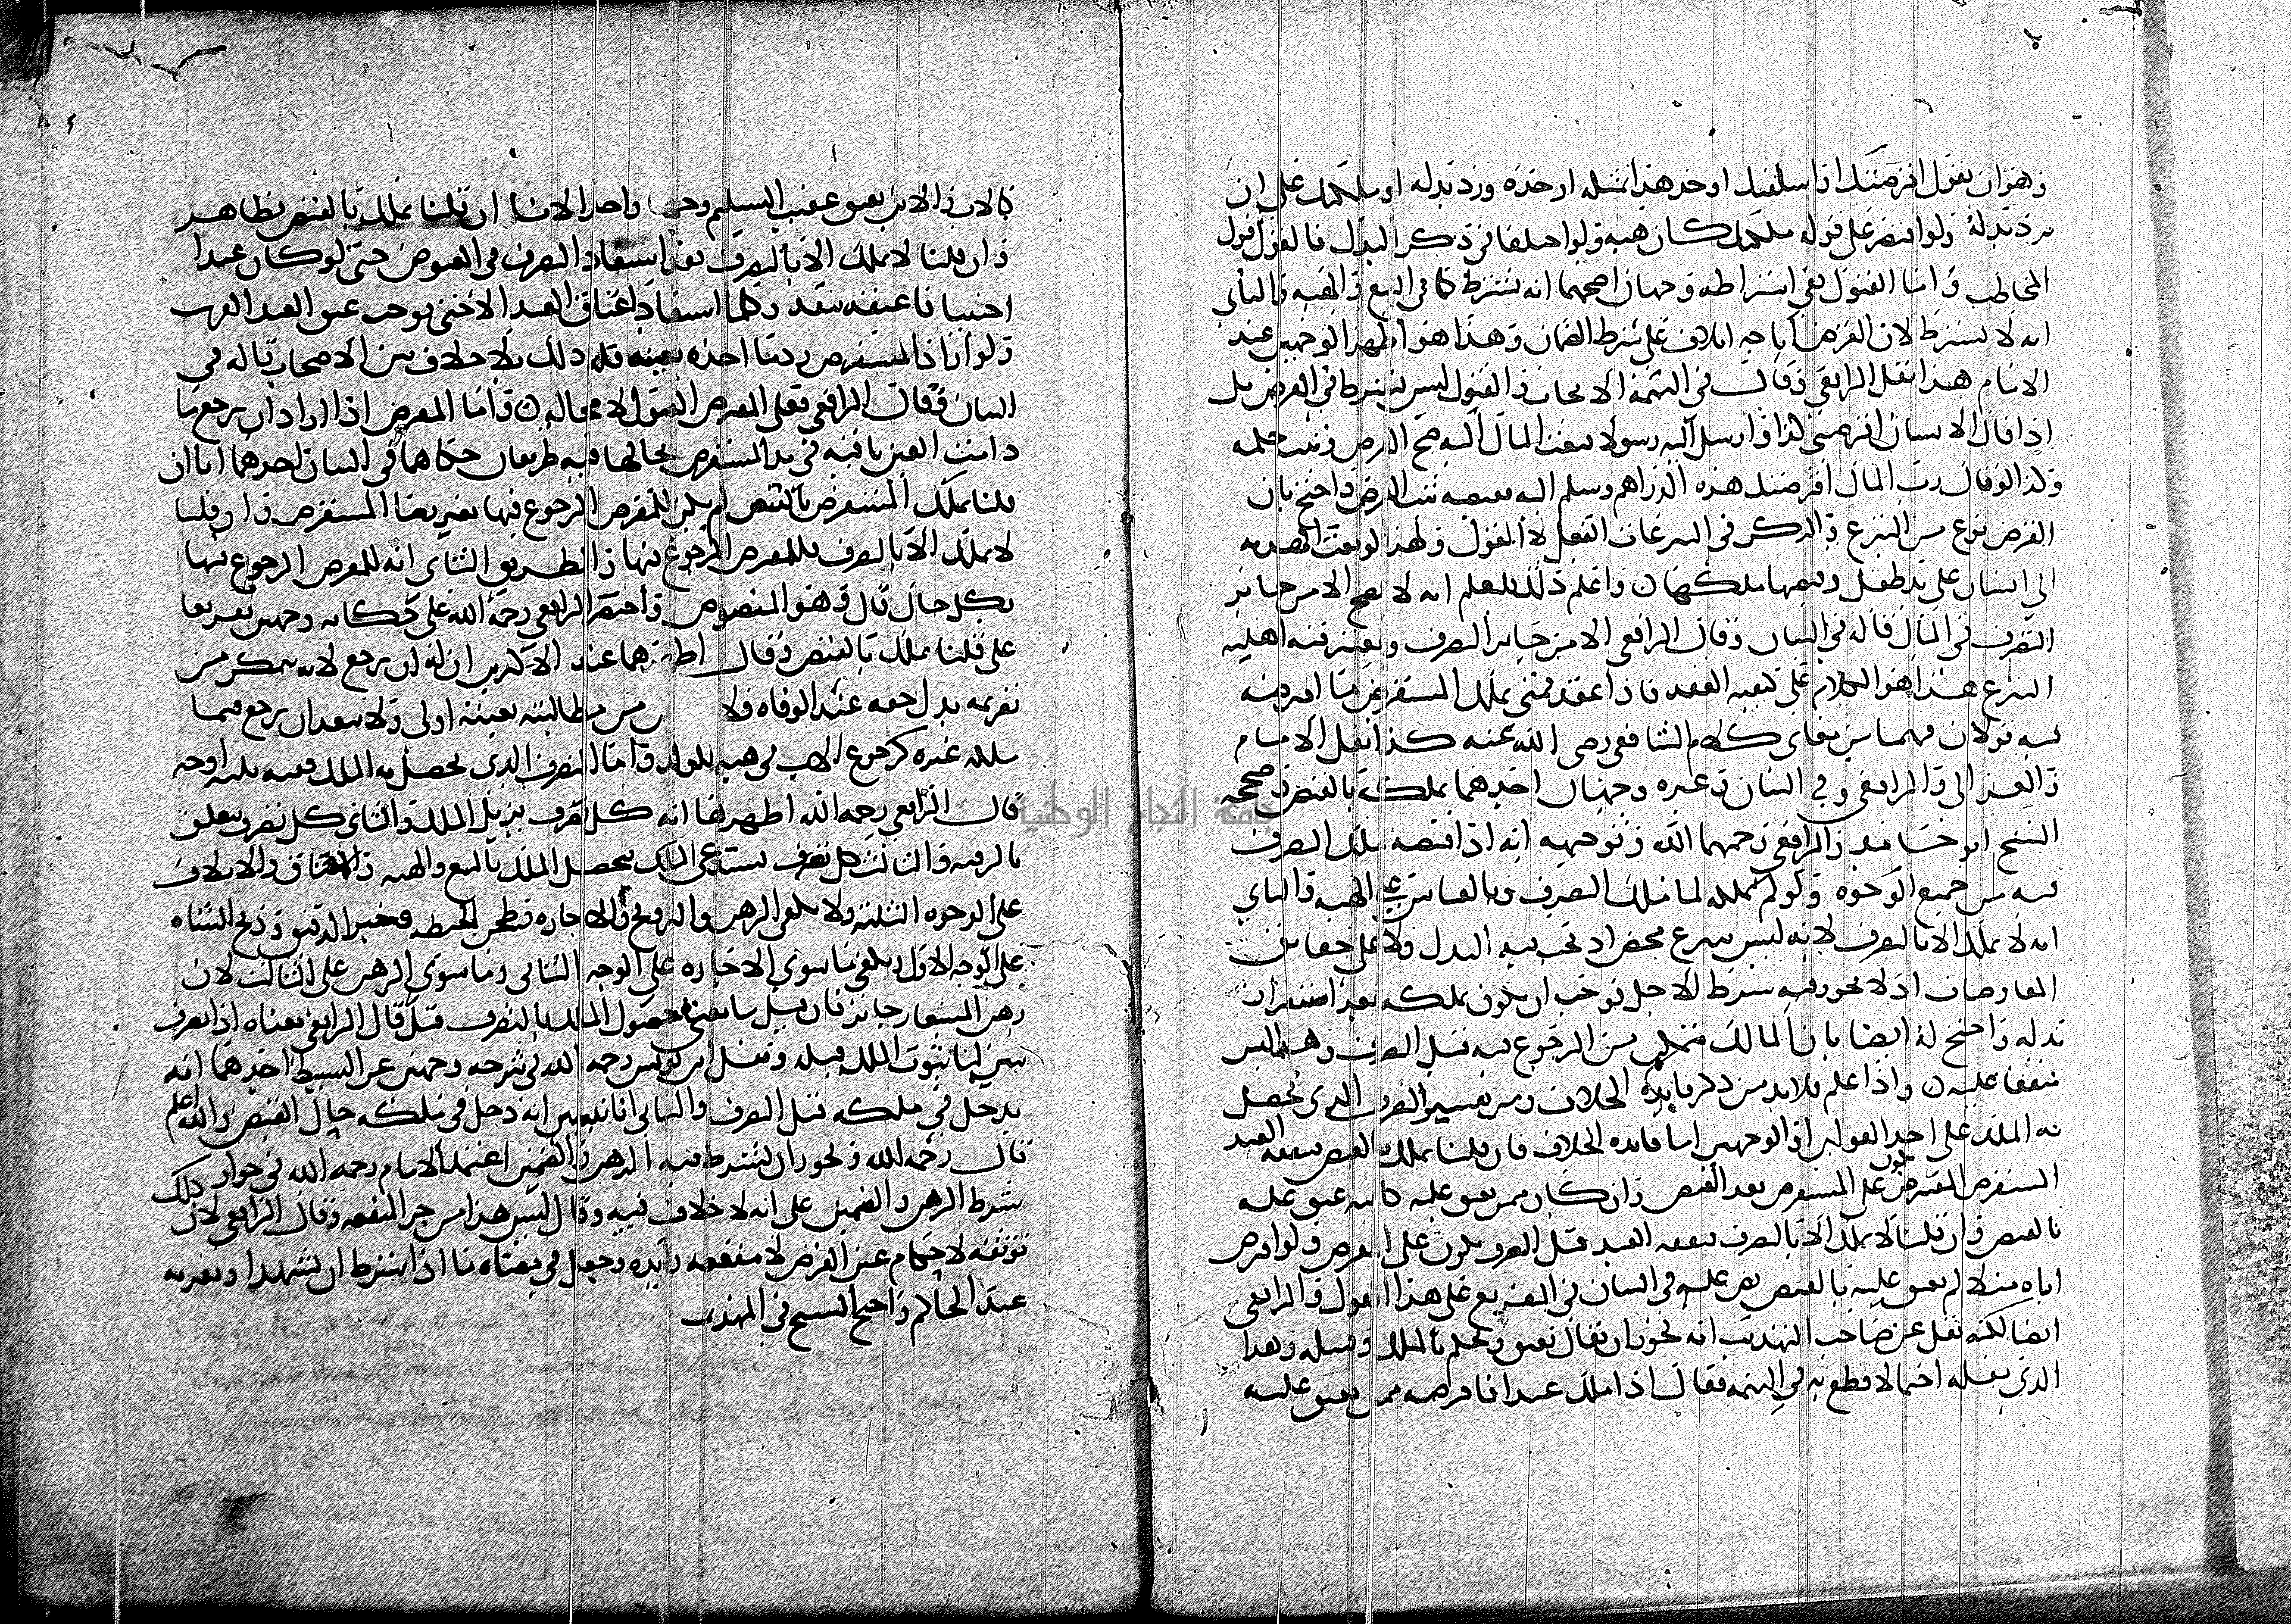 وهو ان يقول اقرضتك او اسلفتك او خذ هذا بمثله او خذه ورد بدله او ملكتك على ان
ترد بدله ولو اقتصر على قوله ملكتك كان هبة ولو اختلفا في ذكر البدل فالقول قول
المخاطب واما القبول ففي اشتراطه وجهان اصحهما انه يشترط كما في البيع والهبة والثاني
انه لا يشترط لان القرض اباحة اتلاف على شرط الضمان وهذا هو اظهر الوجهين عند
الامام هذا نقل الرافعي وقال في التتمة الايجاب والقبول ليس بشرط في القرض بل
اذا قال لانسان اقرضني كذا او ارسل اليه رسولا فبعث المال اليه صح القرض وثبت حكمه
وكذا لو قال رب المال اقرضتك هذه الدراهم وسلم اليه بعضه ثبت القرض واحتج بان
القرض نوع من التبرع والذكر في التبرعات الفعل لا القول ولهذا لو بعث الهدية
الى انسان على يد طفل وقبضها ملكها واعلم انه لا يصح الا من جائز
التصرف في المال قاله في البيان وقال الرافعي الا من جائز التصرف ويعتبر فيه اهلية
التبرع هذا هو الكلام على كيفية العقد فاذا عقد فمتى يملك المستقرض ما اقرضه
فيه قولان فهما من معاني كلام الشافعي رضي الله عنه كذا نقل الامام
والغزالي والرافعي وفي البيان وغيره وجهان احدهما يملك بالقبض وصححه
الشيخ ابو حامد والرافعي رحمهما الله وتوجيهه انه اذا قبضه ملك التصرف
فيه من جميع الوجوه ولو لم يملكه لما ملك التصرف وبالقياس على الهبة والثاني
انه لا يملك الا بالتصرف لانه ليس تبرع محض اذ يجب فيه البدل ولا على حقائق
المعاوضات اذ لا يجوز فيه شرط الاجل فوجب ان يكون تملكه بعد استقرار
بدله واحتج له ايضا بان المالك متمكن من الرجوع فيه قبل التصرف وهذا ليس
متفقا عليه واذا علم فلا بد من ذكر فائدة الخلاف ومن تفسير التصرف الذي يحصل
به الملك على احد القولين او الوجهين اما فائدة الخلاف فان قلنا يملك بالقبض فنفقة العبد
المستقرض تكون على المستقرض بعد القبض وان كان ممن يعتق عليه كابيه عتق عليه
بالقبض وان قلنا لا يملك الا بالتصرف فنفقة العبد قبل التصرف تكون على المقرض ولو اقرض
اباه مثلا لم يعتق عليه بالقبض نص عليه في البيان في التفريع على هذا القول والرافعي
ايضا لكنه نقل عن صاحب التهذيب انه يجوز ان يقال يعتق ويحكم بالملك وقبيله وهذا
الذي نقله احتمالا قطع به في التتمة فقال اذا ملك عبدا فاقرضه ممن يعتق عليه
كالاب والابن يعتق عقيب التسليم وجها واحدا لانا ان قلنا يملك بالقبض فظاهر
وان قلنا لا يملك الا بالتصرف فقد استفاد التصرف في المقبوض حتى لو كان عبدا
اجنبيا فاعتقه نفذ وكما استفاد اعتاق العبد الاجنبي يوجب عتق العبد القريب
ولو اراد المستقرض رد ما اخذه بعينه فله ذلك بلا خلاف بين الاصحاب قاله في
البيان وقال الرافعي فعلى المقرض القبول لا محالة واما المقرض اذا اراد ان يرجع ما
دامت العين باقية في يد المستقرض بحالها ففيه طريقان حكاهما في البيان احدهما اما ان
قلنا يملك المستقرض بالقبض لم يكن للمقرض الرجوع فيها بغير رضا المستقرض وان قلنا
لا يملك الا بالتصرف فللمقرض الرجوع فيها والطريق الثاني انه للمقرض الرجوع فيها
بكل حال قال وهو المنصوص واقتصر الرافعي رحمه الله على حكاية وجهين تفريعا
على قولنا يملك بالقبض وقال اظهرهما عند الاكثرين ان له ان يرجع لانه يتمكن من
تغريمه بدل حقه عند الوفاة فلا من مطالبته بعينه اولى ولا يبعد ان يرجع فيما
ملكه غيره كرجوع الاب في هبة الولد واما التصرف الذي يحصل به الملك ففيه ثلاثة اوجه
قال الرافعي رحمه الله اظهرها انه كل تصرف يزيل الملك والثاني كل تصرف يتعلق
بالرقبة والثالث كل تصرف يستدعي الملك فيحصل الملك بالبيع والهبة والاعتاق والاتلاف
على الوجوه الثلاثة ولا يكفي الرهن والتزويج والاجارة وطحن الحنطة وخبز الدقيق وذبح الشاة
على الوجه الاول ويكفي ما سوى الاجارة على الوجه الثاني وما سوى الرهن على الثالث لان
رهن المستعار جائز فان قيل ما معنى حصول الملك بالتصرف قيل قال الرافعي معناه اذا تصرف
تبين لنا ثبوت الملك قبله ونقل ابن يونس رحمه الله في شرحه وجهين عن البسيط احدهما انه
يدخل في ملكه قبل التصرف والثاني انا نتبين انه دخل في ملكه حال القبض والله اعلم
قال رحمه الله ويجوز ان يشترط فيه الرهن والضمين اعتمد الامام رحمه الله في جواز ذلك
شرط الرهن والضمين على انه لا خلاف فيه وقال ليس هذا من جر المنفعة وقال الرافعي لان
توثقه لاحكام عين القرض لا منفعة زائدة وجعل في معناه ما اذا شرط ان يشهد او يقر به
عند الحاكم واحتج الشيخ في المهذب